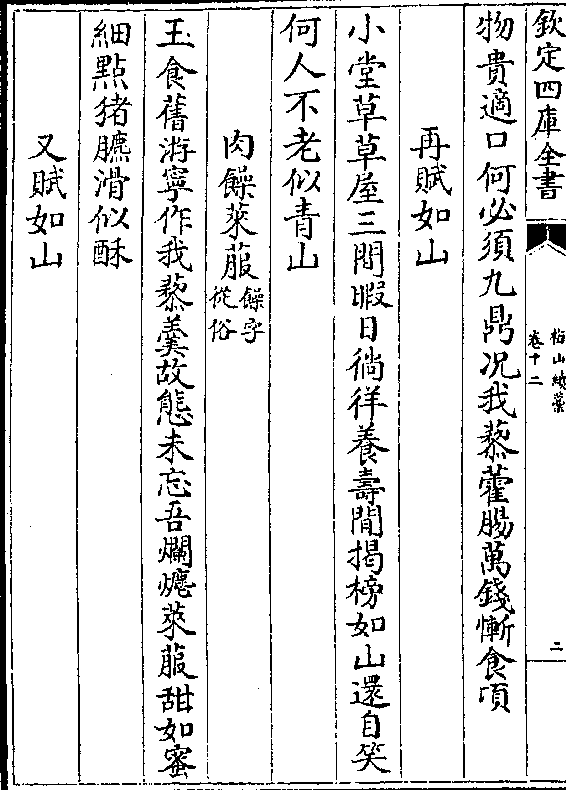 欽定四庫全書
梅山續藁
卷十二
二
物貴適口何必須九鼎况我藜藿腸萬錢慚食頃
再賦如山
小堂草草屋三間暇日徜徉養壽閒揭榜如山還自笑
何人不老似青山
肉饡萊菔饡字從俗
玉食舊游寧作我藜羹故態未忘吾爛𤑃萊菔甜如蜜
細點猪臕滑似酥
又賦如山